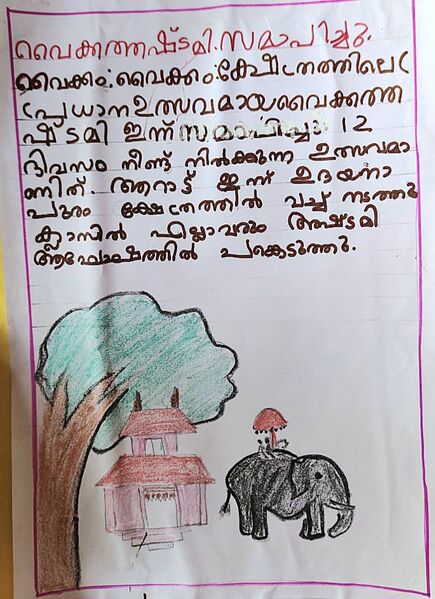 വൈക്കത്തഷ്ടമി.സമാപിച്ചു.
വൈക്കം:വൈക്കം:ക്ഷേത്രത്തിലെ (
(പ്രധാന ഉത്സവമായ വൈക്കത്ത
ഷ്ടമി ഇന്ന് സമാപിച്ചു 12
ദിവസം നീണ്ട് നിൽക്കുന്ന ഉത്സവമാ
ണിത്. ആറാട്ട് ഇന്ന് ഉദയനാ
പുരം ക്ഷേത്രത്തിൽ വച്ച് നടത്തു
ക്ലാസിൽ എല്ലാവരും അഷ്ടമി
ആഘോഷത്തിൽ പങ്കെടുത്തു.